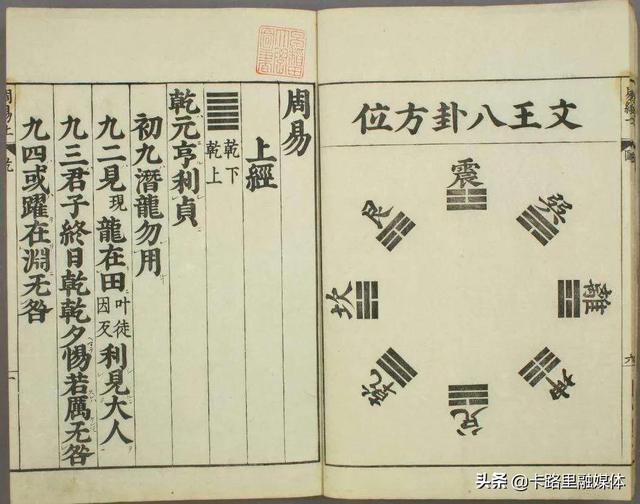 文王八卦方位
震
巽
離
坤
兌
乾
坎
艮
周易
上經
乾下
乾上
乾元亨利貞
初九潛龍勿用
九二見現龍在田叶徒因反利見大人
九三君子終日乾乾夕惕若厲无咎
九四或躍在淵无咎
周易上
乾
一
头条 @卡路里融媒体